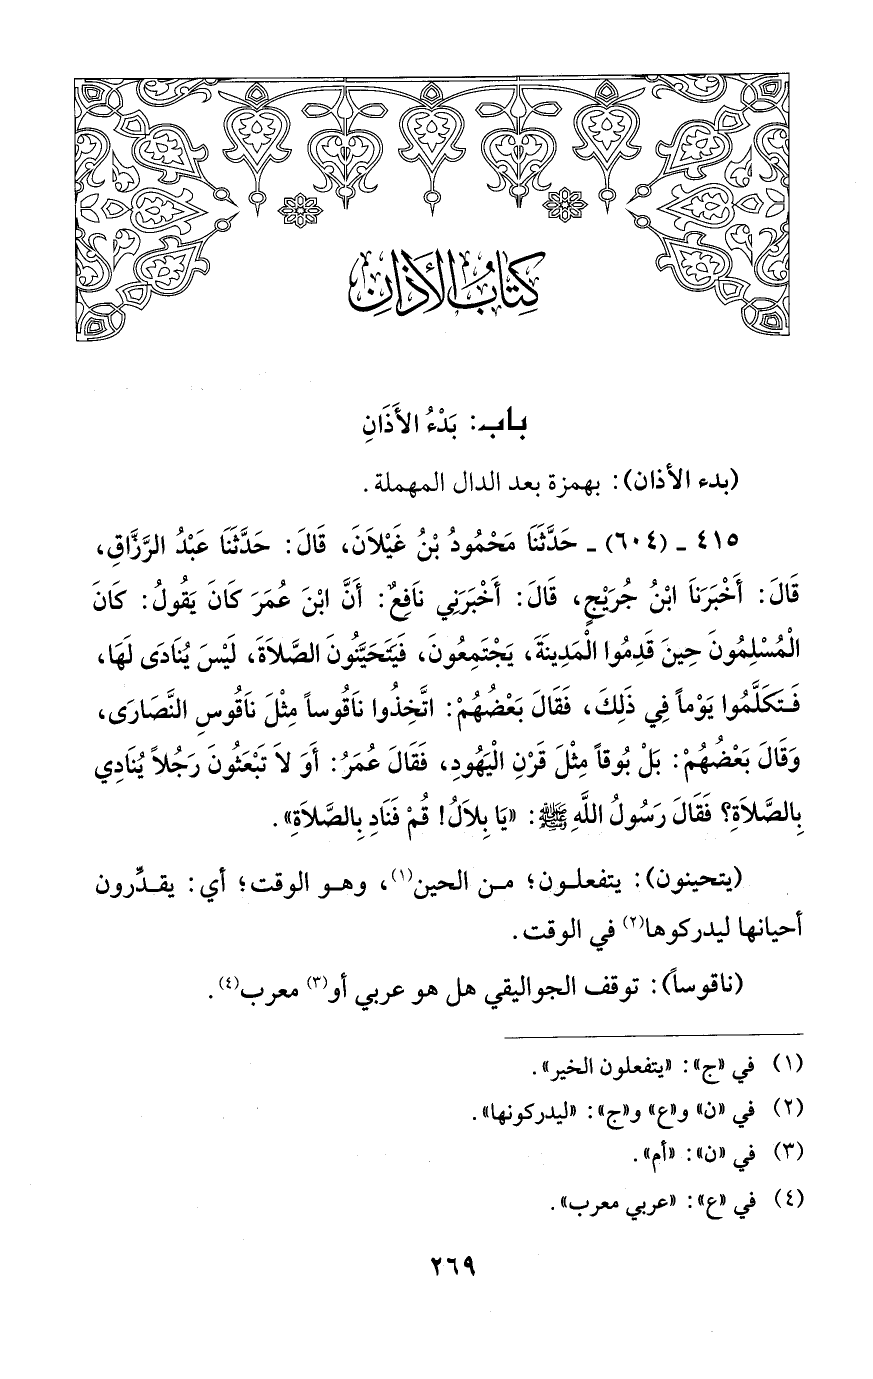 كِتَابُ الأَذَانِ
باب: بَدْءُ الأَذَانِ
(بدء الأذان): بهمزة بعد الدال المهملة.
٤١٥ ـ (٦٠٤) ـ حَدَّثَنَا مَحْمُودُ بْنُ غَيْلاَنَ، قَالَ: حَدَّثَنَا عَبْدُ الرَّزَّاقِ،
قَالَ: أَخْبَرَنَا ابْنُ جُرَيْجٍ، قَالَ: أَخْبَرَنِي نَافِعٌ: أَنَّ ابْنَ عُمَرَ كَانَ يَقُولُ: كَانَ
الْمُسْلِمُونَ حِينَ قَدِمُوا الْمَدِينَةَ، يَجْتَمِعُونَ، فَيَتَحَيَّنُونَ الصَّلاَةَ، لَيْسَ يُنَادَى لَهَا،
فَتَكَلَّمُوا يَوْماً فِي ذَلِكَ، فَقَالَ بَعْضُهُمْ: اتَّخِذُوا نَاقُوساً مِثْلَ نَاقُوسِ النَّصَارَى،
وَقَالَ بَعْضُهُمْ: بَلْ بُوقاً مِثْلَ قَرْنِ الْيَهُودِ، فَقَالَ عُمَرُ: أَوَ لاَ تَبْعَثُونَ رَجُلاً يُنَادِي
بِالصَّلاَةِ؟ فَقَالَ رَسُولُ اللَّهِ ﷺ: «يَا بِلاَلُ! قُمْ فَنَادِ بِالصَّلاَةِ».
(يتحينون): يتفعلون؛ من الحين(١)، وهو الوقت؛ أي: يقدِّرون
أحيانها ليدركوها(٢) في الوقت.
(ناقوساً): توقف الجواليقي هل هو عربي أو(٣) معرب(٤).
(١) في «ج»: «يتفعلون الخير».
(٢) في «ن» و«ع» و«ج»: «ليدركونها».
(٣) في «ن»: «أم».
(٤) في «ع»: «عربي معرب».
٢٦٩